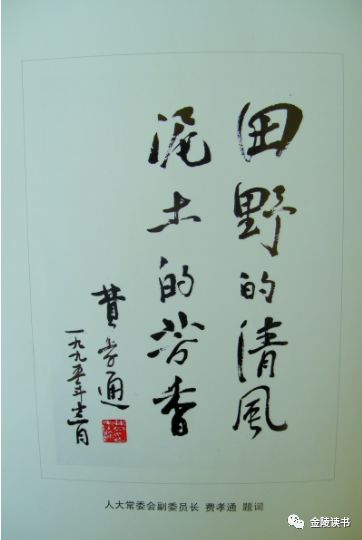 田野的清風
泥土的芬香
费孝通
一九九五年十二月
人大常委会副委员长 费孝通 题词
金陵读书